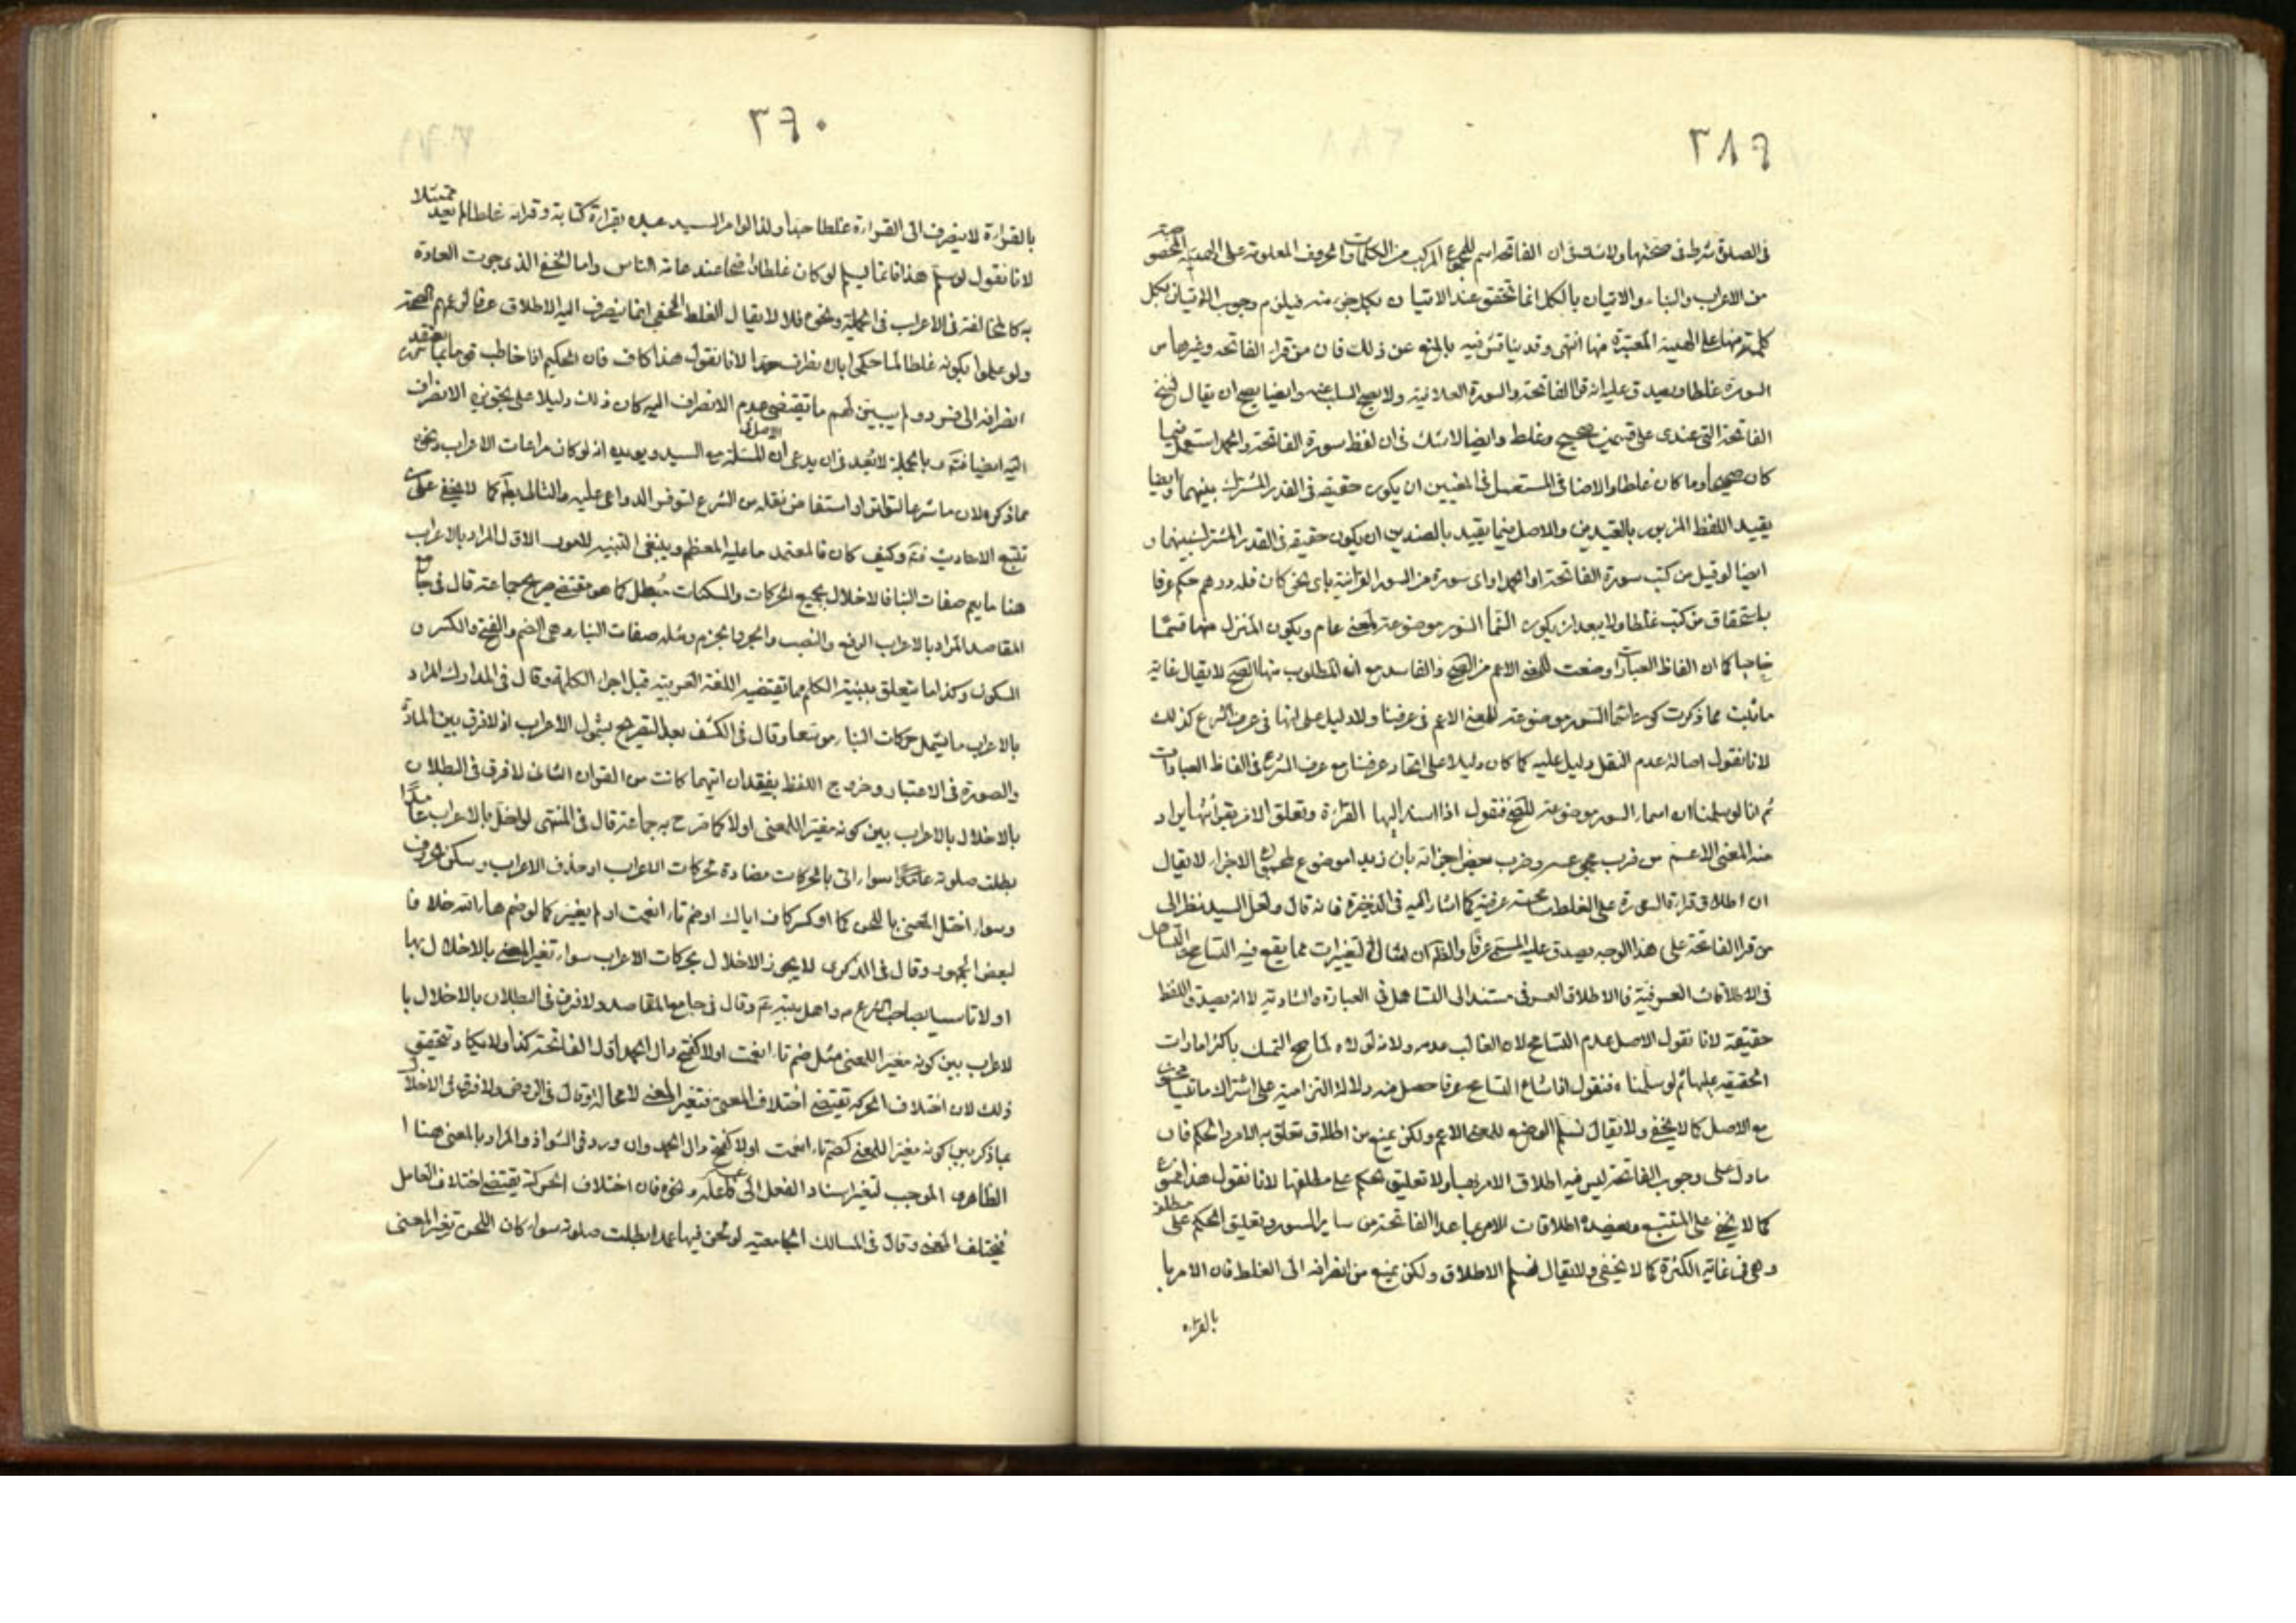 ٣٨٩
في الصلوة شرط في صحتها ولا شك في ان الفاتحة اسم للمجموع المركب من الكلمات والحروف المعلومة على الهيئة المخصوصة
من الاعراب والبناء والاتيان بالكل انما تحقق عند الاتيان بكل جزء منه فيلزم وجوب الاتيان بكل
كلمة منها على الهيئة المعتبرة فيها انتهى وقد يناقش فيه بالمنع عن ذلك فان من قرا الفاتحة وغيرها من
السورة غلطا يصدق عليه انه قرا الفاتحة والسورة الفلانية ولا يصح السلب عنه وايضا يصح ان يقال نسخ
الفاتحة التي عندي على قسمين صحيح وغلط وايضا لا شك في ان لفظ سورة الفاتحة والحمد استعمل فيما
كان صحيحا وما كان غلطا والاصل في المستعمل في المعنيين ان يكون حقيقة في القدر المشترك بينهما وايضا
يقيد اللفظ المزبور بالقيدين والاصل فيما يقيد بالضدين ان يكون حقيقة في القدر المشترك بينهما و
ايضا لو قيل من كتب سورة الفاتحة او الحمد او اي سورة من السور القرانية باي نحو كان فله درهم حكم عرفا
باستحقاق من كتب غلطا ولا يبعد ان يكون اسماء السور موضوعة لمعنى عام ويكون المنزل منها قسما
خاصا كما ان الفاظ العبادات وضعت للمعنى الاعم من الصحيح والفاسد مع ان المطلوب منها الصحيح لا يقال غاية
ما ثبت مما ذكرت كون اسماء السور موضوعة للمعنى الاعم في عرفنا ولا دليل على انها في عرف الشرع كذلك
لانا نقول اصالة عدم النقل دليل عليه كما كان دليلا على اتحاد عرفنا مع عرف الشرع في الفاظ العبادات
ثم انا لو سلمنا ان اسماء السور موضوعة للصحيح فنقول اذا اسند اليها القراءة وتعلق الامر بقراءتها يراد
منه المعنى الاعم من
ان اطلاق قراءة السورة على الغلط صحة عرفية كما اشار اليه في الذخيرة فانه قال ولعل السيد نظر الى
من قرا الفاتحة على هذا الوجه يصدق عليه المسمى عرفا والظم ان امثال التغييرات مما يقع فيه التسامح والتساهل
في الاطلاقات العرفية فالاطلاق العرفي مستند الى التساهل في العبارة والتادية لا انه يصدق اللفظ
حقيقة لانا نقول الاصل عدم التسامح لان الغالب عدمه ولانه لولاه لما صح التمسك باكثر امارات
الحقيقة عليها ثم لو سلمناه فنقول اذا شاع التسامح عرفا حصل منه دلالة التزامية على اشتراك ما تسامحوا
مع الاصل كما لا يخفى ولا يقال نسلم الوضع للمعنى الاعم ولكن يمنع من اطلاق تعلق به الامر والحكم فان
ما دل على وجوب الفاتحة ليس فيه اطلاق الامر بها ولا تعليق حكم على مطلقها لانا نقول هذا ممنوع
كما لا يخفى على المتتبع ويعضده اطلاقات للامر بما عدا الفاتحة من ساير السور وتعليق الحكم على مطلقه
وهي في غاية الكثرة كما لا يخفى ولا يقال نسلم الاطلاق ولكن يمنع من انصرافه الى الغلط فان الامر با
بالقراءة
٣٩٠
بالقراءة لا ينصرف الى القراءة غلطا جدا ولذا لو امر السيد عبده بقراءة كتابة وقراه غلطا لم يعد ممتثلا
لانا نقول لو سلم هذا فانما يسلم لو كان غلطا واضحا عند عامة الناس واما الخفي الذي جرت العادة
به كالمخالفة في الاعراب في الجملة ونحوه فلا لا يقال الغلط الخفي انما ينصرف اليه الاطلاق عرفا لزعمهم الصحة
ولو علموا بكونه غلطا لما حكموا بانصرافه جدا لانا نقول هذا كاف فان الحكيم اذا خاطب قوما بما يعتقد
انصرافه الى فرد ولم يبين لهم ما يقتضي عدم الانصراف اليه كان ذلك دليلا على تجويزه الانصراف
اليه ايضا فتم وبالجملة لا بعد في ان يدعى ان الاصل في المسئلة مع السيد ويويده انه لو كان مراعات الاعراب ونحوه
مما ذكر لان ما شرعا لتواتر او استفاض نقله من الشرع لتوفر الدواعي عليه والتالي بط كما لا يخفى على
تتبع الاحاديث فتم وكيف كان فالمعتمد ما عليه المعظم وينبغي التنبيه لامور الاول المراد بالاعراب
هنا ما يعم صفات البنا فالاخلال بجميع الحركات والسكنات مبطل كما هو مقتضى صريح جماعة قال في جامع
المقاصد المراد بالاعراب الرفع والنصب والجر والجزم ومثله صفات البناء وهي الضم والفتح والكسر و
السكون وكذا ما يتعلق ببنية الكلم مما تقتضيه اللغة العربية قبل اجراء الكلمة وقال في المدارك المراد
بالاعراب ما يشمل حركات البناء توسعا وقال في الكشف بعد التصريح بشمول الاعراب اذ لا فرق بين المادة
والصورة في الاعتبار وخروج اللفظ بفقدان ايتهما كانت من القران الثاني لا فرق في البطلان
بالاخلال بالاعراب بين كونه مغيرا للمعنى او لا كما صرح به جماعة قال في المنتهى لو اخل بالاعراب عامدا
بطلت صلوته عامدا سواء اتى بالحركات مضادة لحركات الاعراب او حذف الاعراب وسكن الحروف
وسواء اختل المعنى باللحن كما لو كسر كاف اياك او ضم تاء انعمت او لم يغير كما لو ضم هاء الله خلافا
لبعض الجمهور وقال في الذكرى لا يجوز الاخلال بحركات الاعراب سواء تغير المعنى بالاخلال بها
او لا تاسيا بصاحب الشرع ص واهل بيته ع وقال في جامع المقاصد ولا فرق في البطلان بالاخلال با
لاعراب بين كونه مغيرا للمعنى مثل ضم تاء انعمت او لا كفتح دال الحمد اول الفاتحة كذا ولا يكاد يتحقق
ذلك لان اختلاف الحركة تقتضي اختلاف المعنى فتغير المعنى لا محالة وقال في الروض ولا فرق في الاخلال
بما ذكر بين كونه مغيرا للمعنى كضم تاء انعمت او لا كفتح دال الحمد وان ورد في الشواذ والمراد بالمعنى هنا ا
الظاهري الموجب لتغير اسناد الفعل الى فاعله ونحوه فان اختلاف الحركة يقتضي اختلاف العامل
فيختلف المعنى وقال في المسالك الجامعية لو لحن فيها عمدا بطلت صلوته سواء كان اللحن تغير المعنى